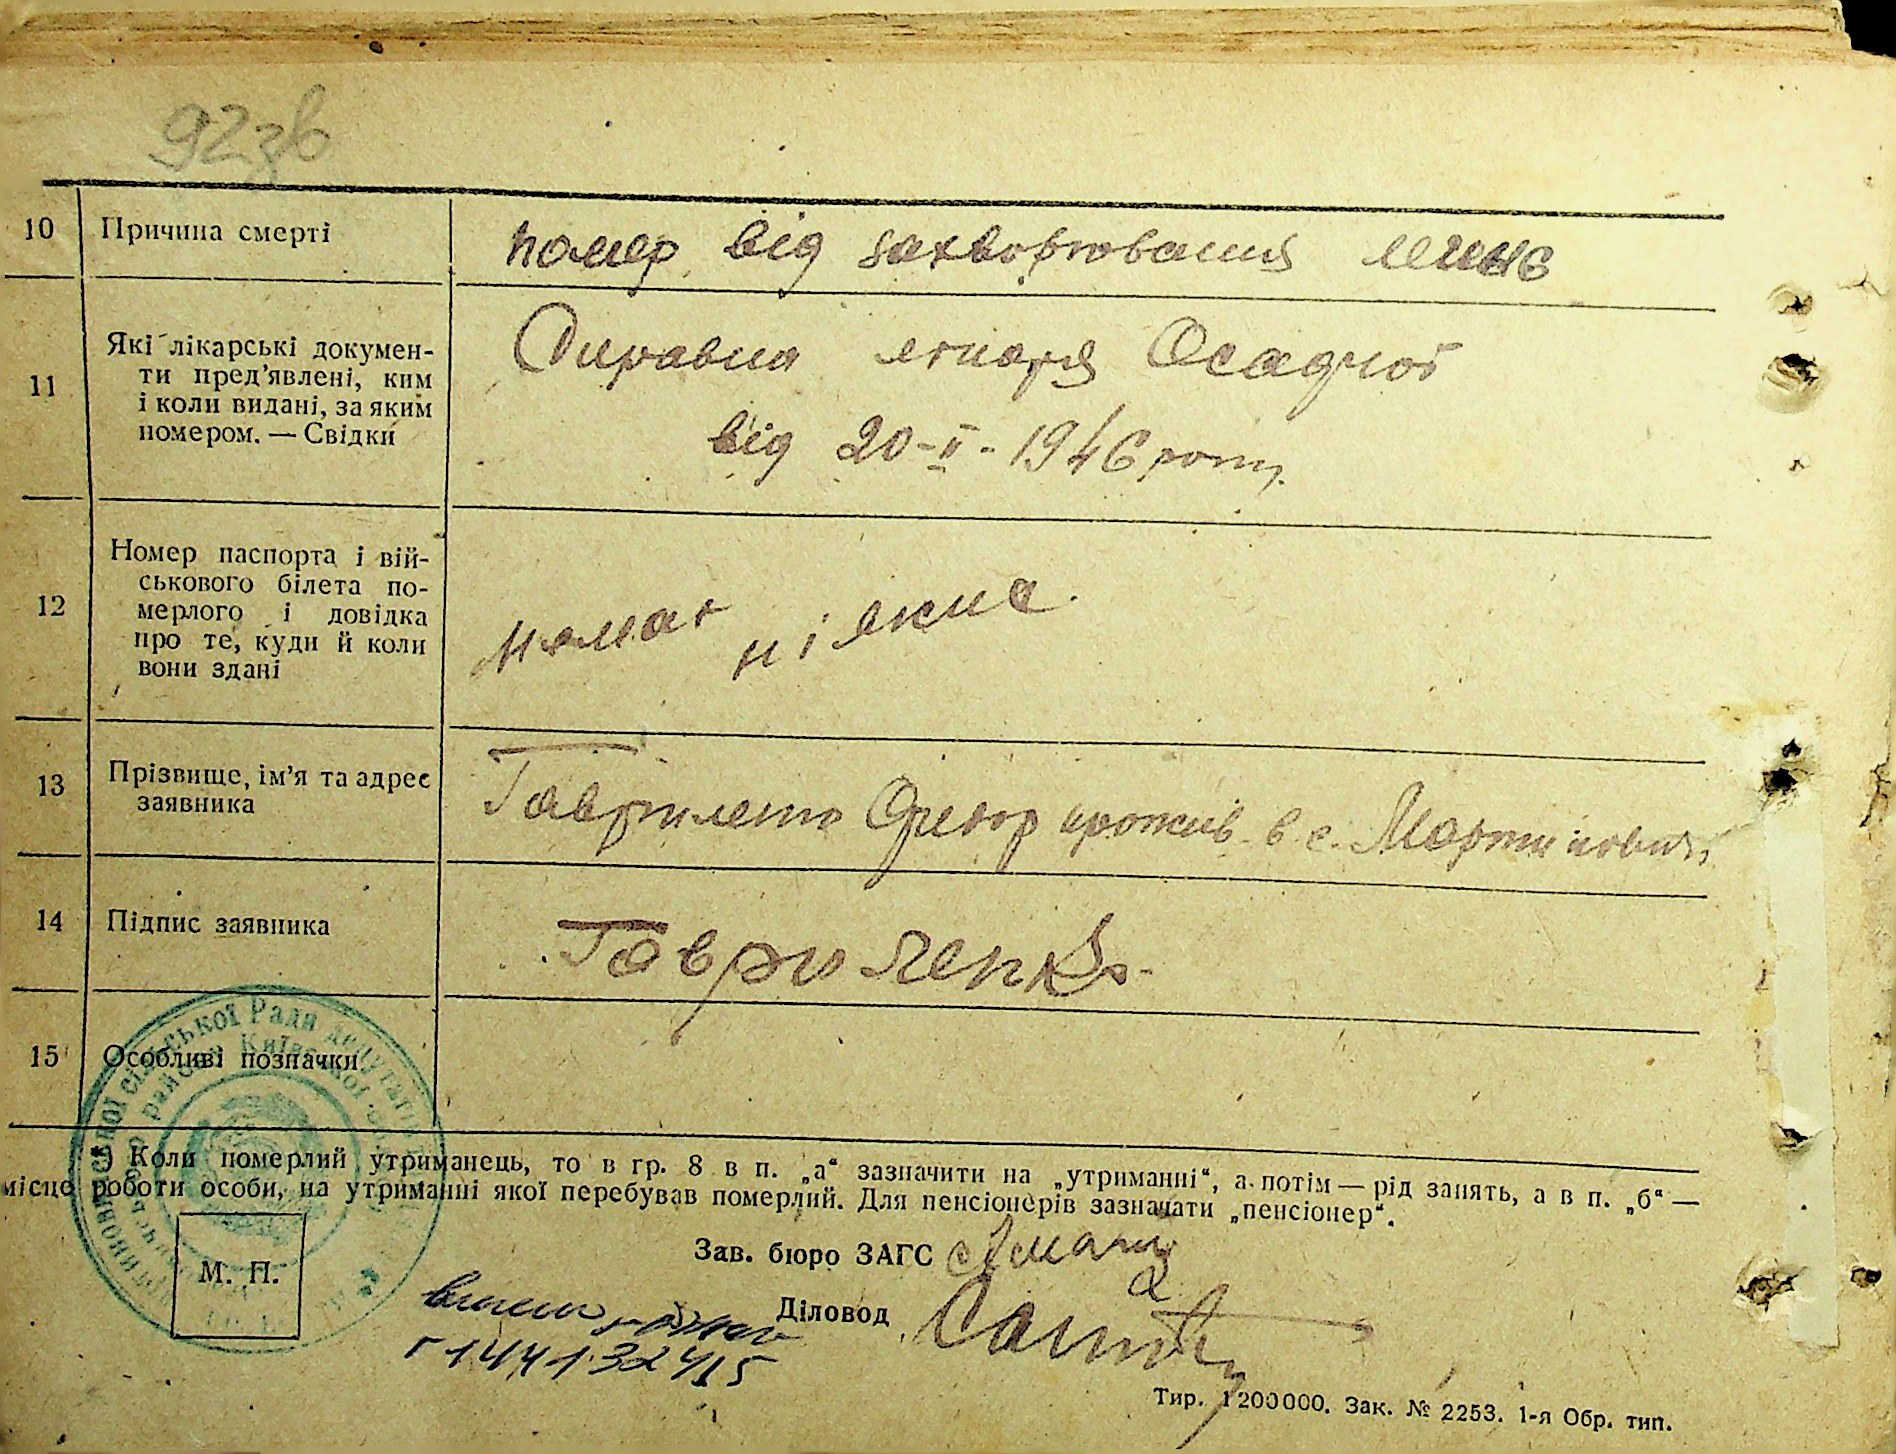 92зв
10 Причина смерті помер від захворювання
11 Які лікарські докумен-
ти пред'явлені, ким
і коли видані, за яким
номером. — Свідки
Справка лікаря Осадчої
від 20-II-1946 року.
12 Номер паспорта і вій-
ськового білета по-
мерлого і довідка
про те, куди й коли
вони здані
немає ніяких.
13 Прізвище, ім'я та адрес
заявника
Гавриленко Федор прожив. в с. Мартиновка
14 Підпис заявника Гавриленко
15 Особливі позначки
*) Коли померлий утриманець, то в гр. 8 в п. „а“ зазначити на „утриманні“, а потім — рід занять, а в п. „б“ —
місце роботи особи, на утриманні якої перебував померлий. Для пенсіонерів зазначати „пенсіонер“.
Зав. бюро ЗАГС
Діловод
М. П.
сільської Ради депутатів
району Київської
Тир. 1200000. Зак. № 2253. 1-я Обр. тип.